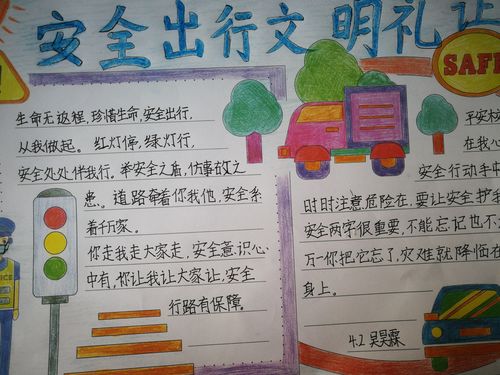 安全出行文明礼让
SAFE
生命无返程，珍惜生命，安全出行，
从我做起。红灯停，绿灯行，
安全处处伴我行。举安全之盾，防事故之
患。道路牵着你我他，安全系
着千万家。
你走我走大家走，安全意识心
中有，你让我让大家让，安全
行路有保障。
平安校
在我心
安全行动手中
时时注意危险在，要让安全护我
安全两字很重要，不能忘记也不
万一你把它忘了，灾难就降临在
身上。
4.2 吴昊霖